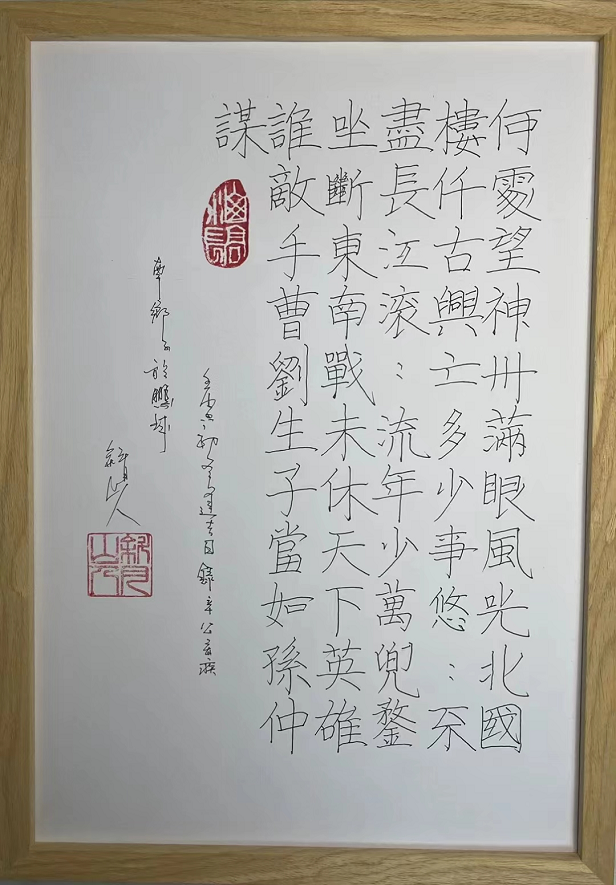 何處望神州滿眼風光北國
樓仟古興亡多少事悠：不
盡長江滾：流年少萬兜鍪
坐斷東南戰未休天下英雄
誰敵手曹劉生子當如孫仲
謀
吉日錄辛公棄疾
南鄉子於鵬城
山人